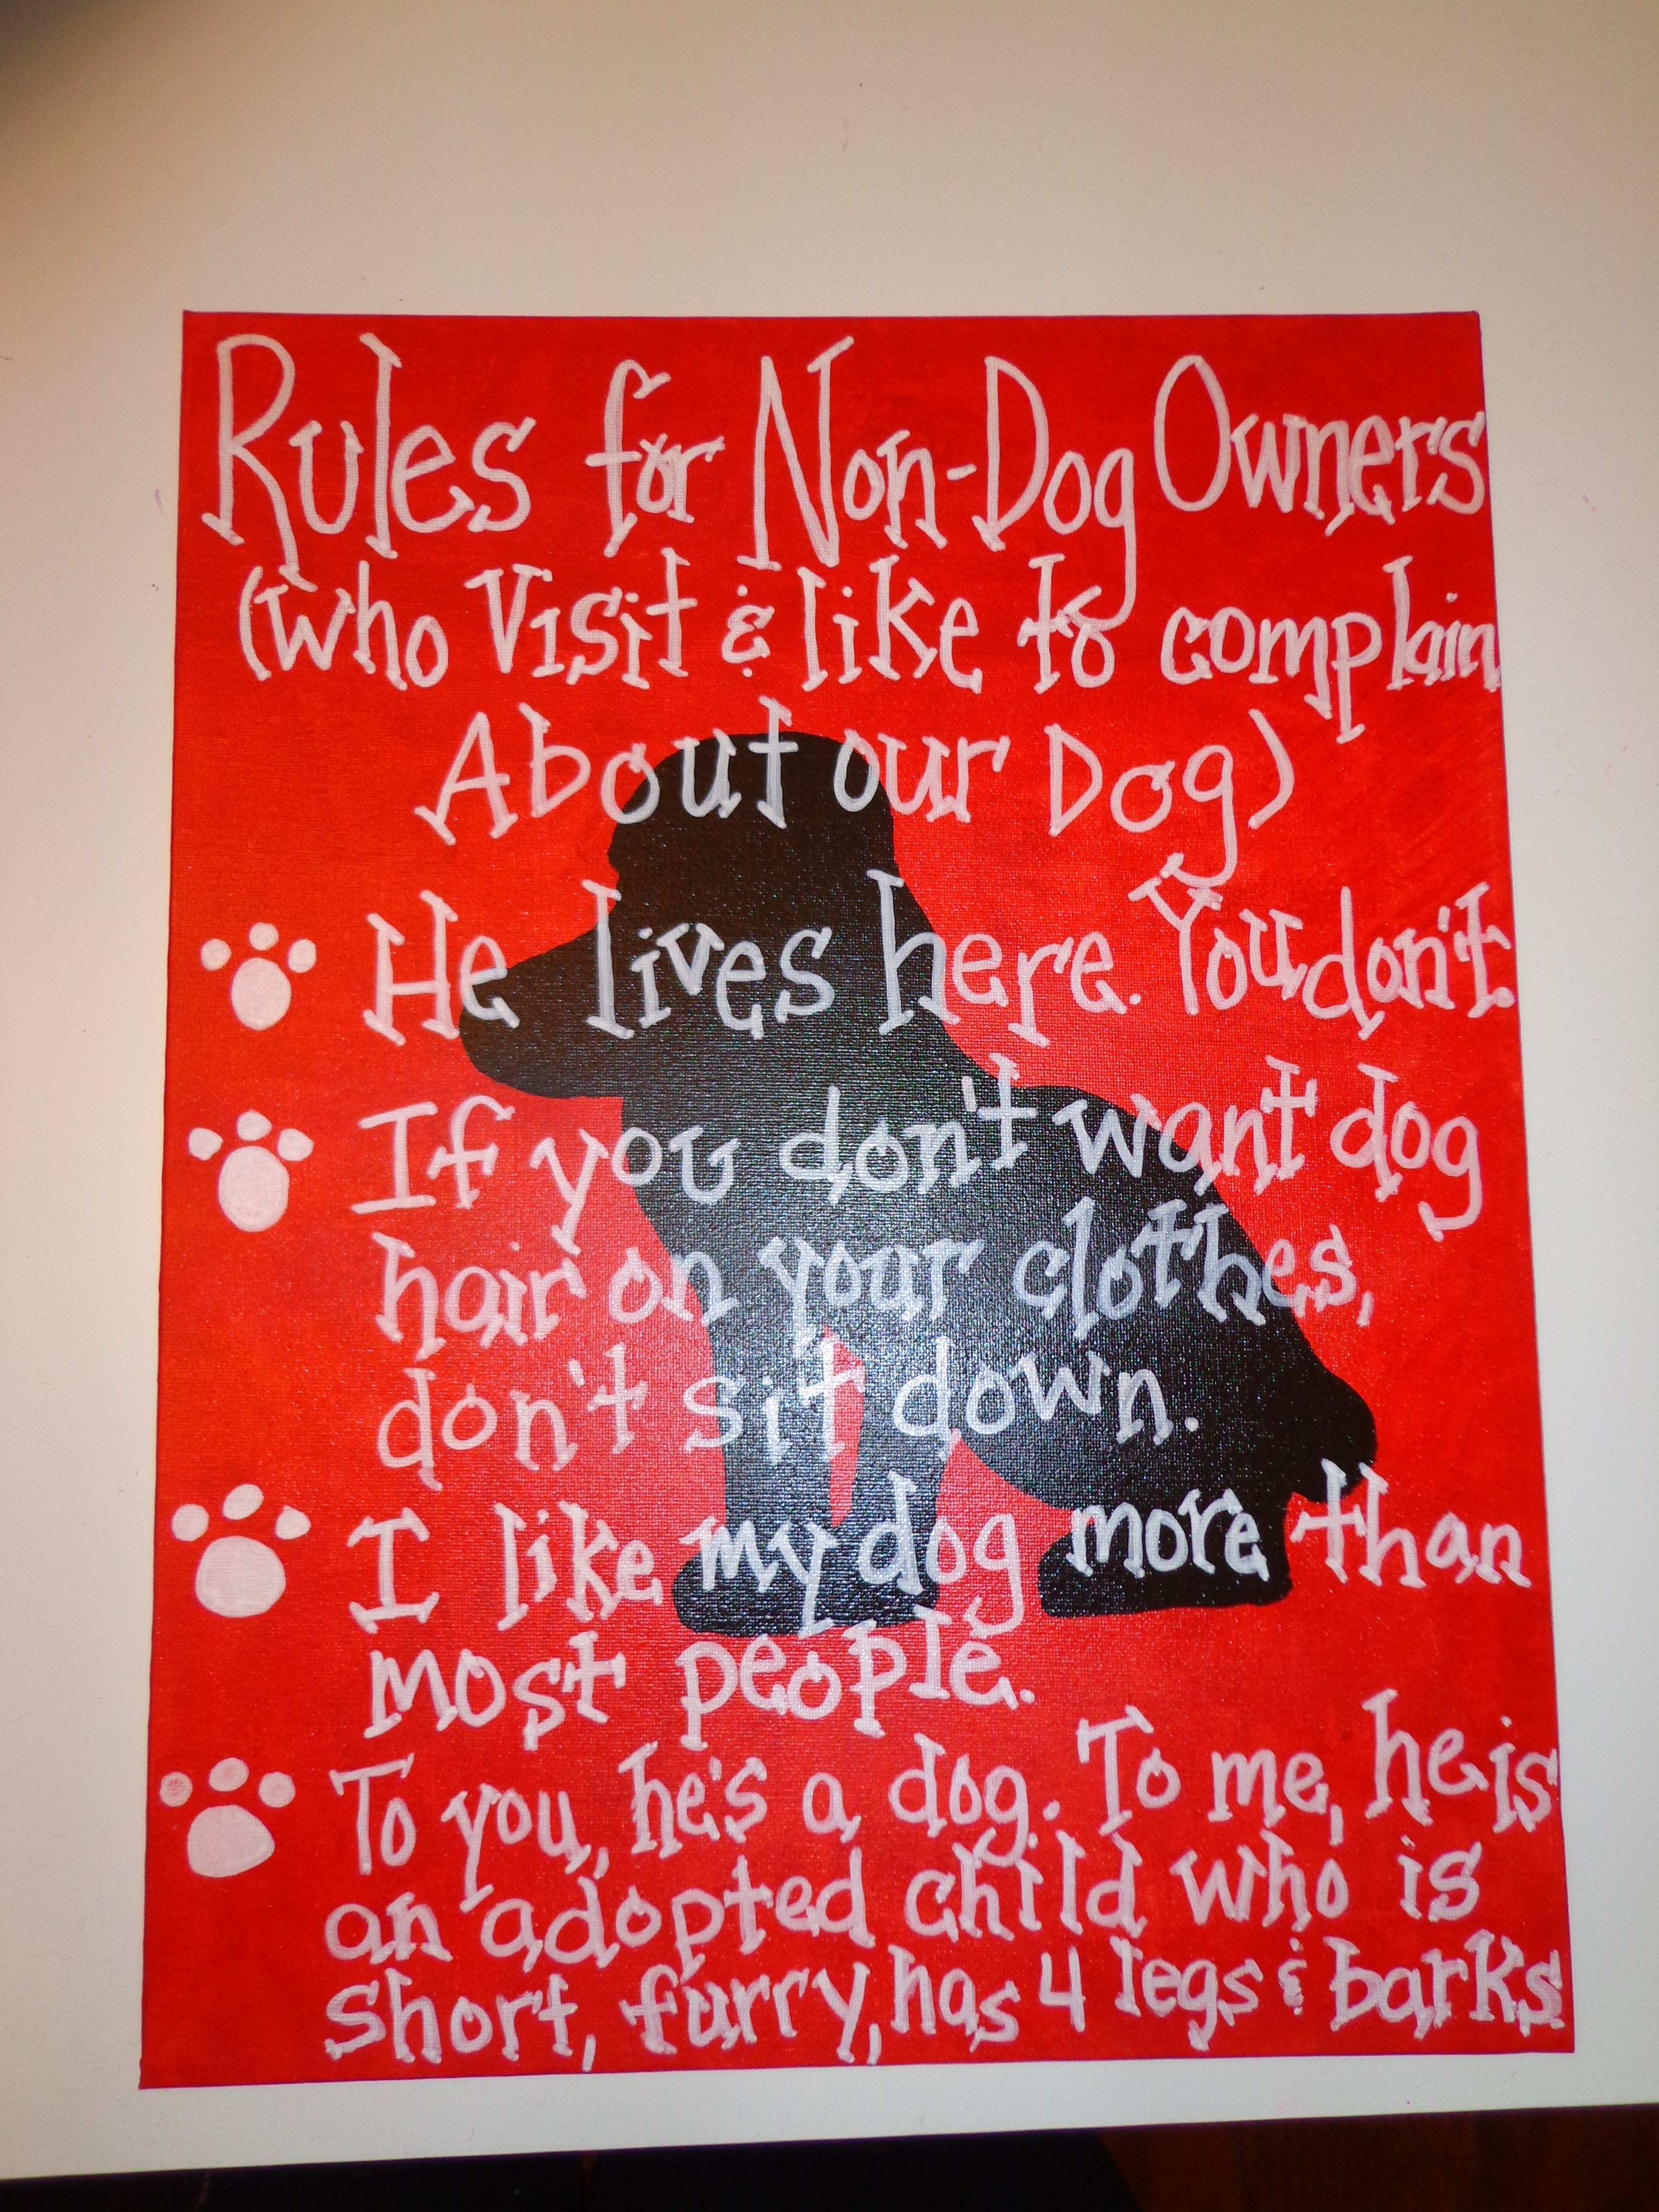 Rules for Non-Dog Owners
(who Visit & like to complain
About our Dog)
He lives here. You don't.
If you don't want dog
hair on your clothes,
don't sit down.
I like my dog more than
most people.
To you, he's a dog. To me, he is
an adopted child who is
short, furry, has 4 legs & barks